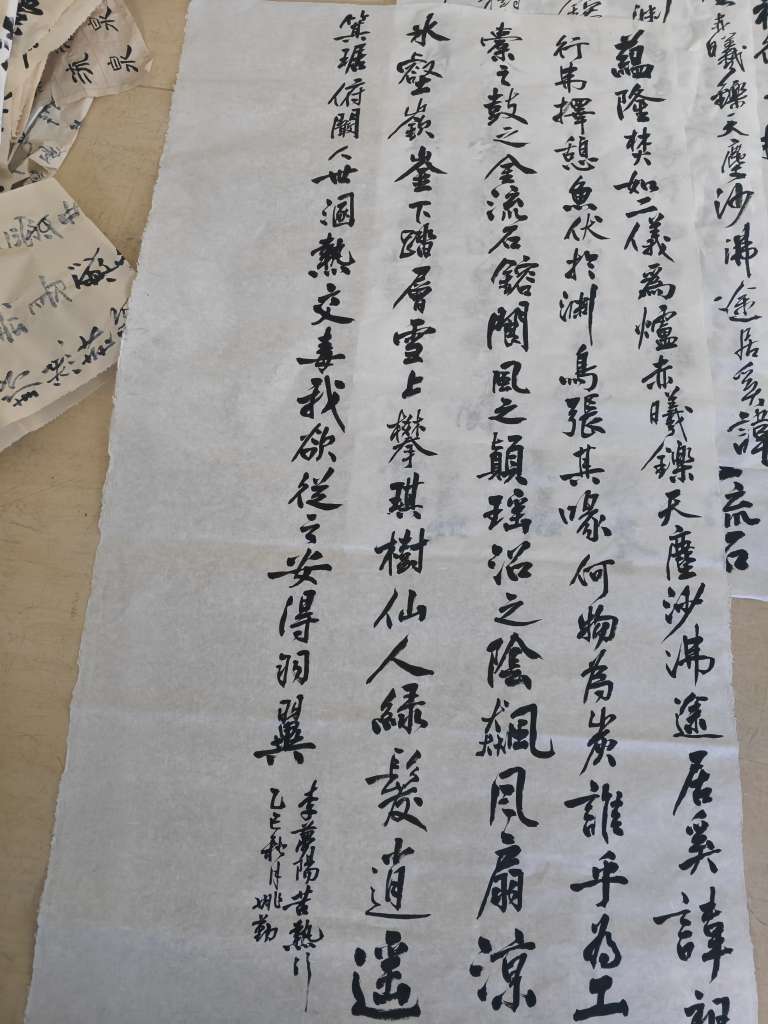 赤曦鑠天塵沙沸途居奚諱
流石
蘊隆焚如二儀爲爐赤曦鑠天塵沙沸途居奚諱袒
行擇憩魚伏於淵鳥張其喙何物為炭誰乎為工
橐之鼓之金流石鎔閬風之顛瑤沼之陰飆風扇涼
冰壑嶔崟下踏層雪上攀琪樹仙人緑髮逍遥
箕踞俯闞人世溷熱交毒我欲從之安得羽翼
李夢陽苦熱行
乙巳秋月姚勤
泉
流